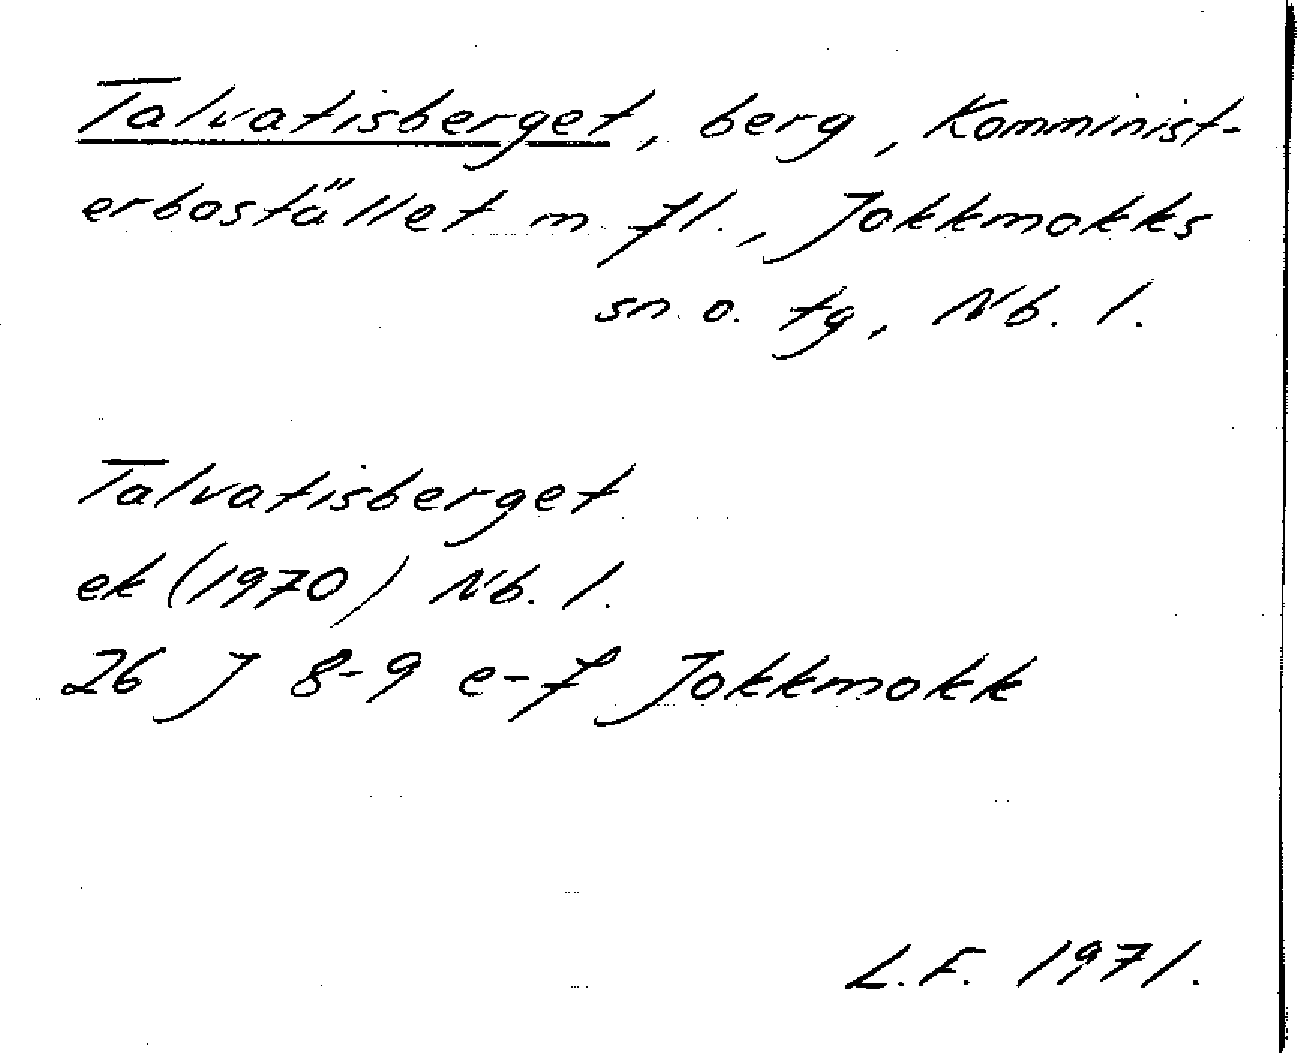 Talvatisberget, berg, Komminist-
erbostället m. fl., Jokkmokks
sn o. tg, Nb. l.
Talvatisberget
ek (1970) Nb. l.
26 J 8-9 e-f Jokkmokk
L.F. 1971.